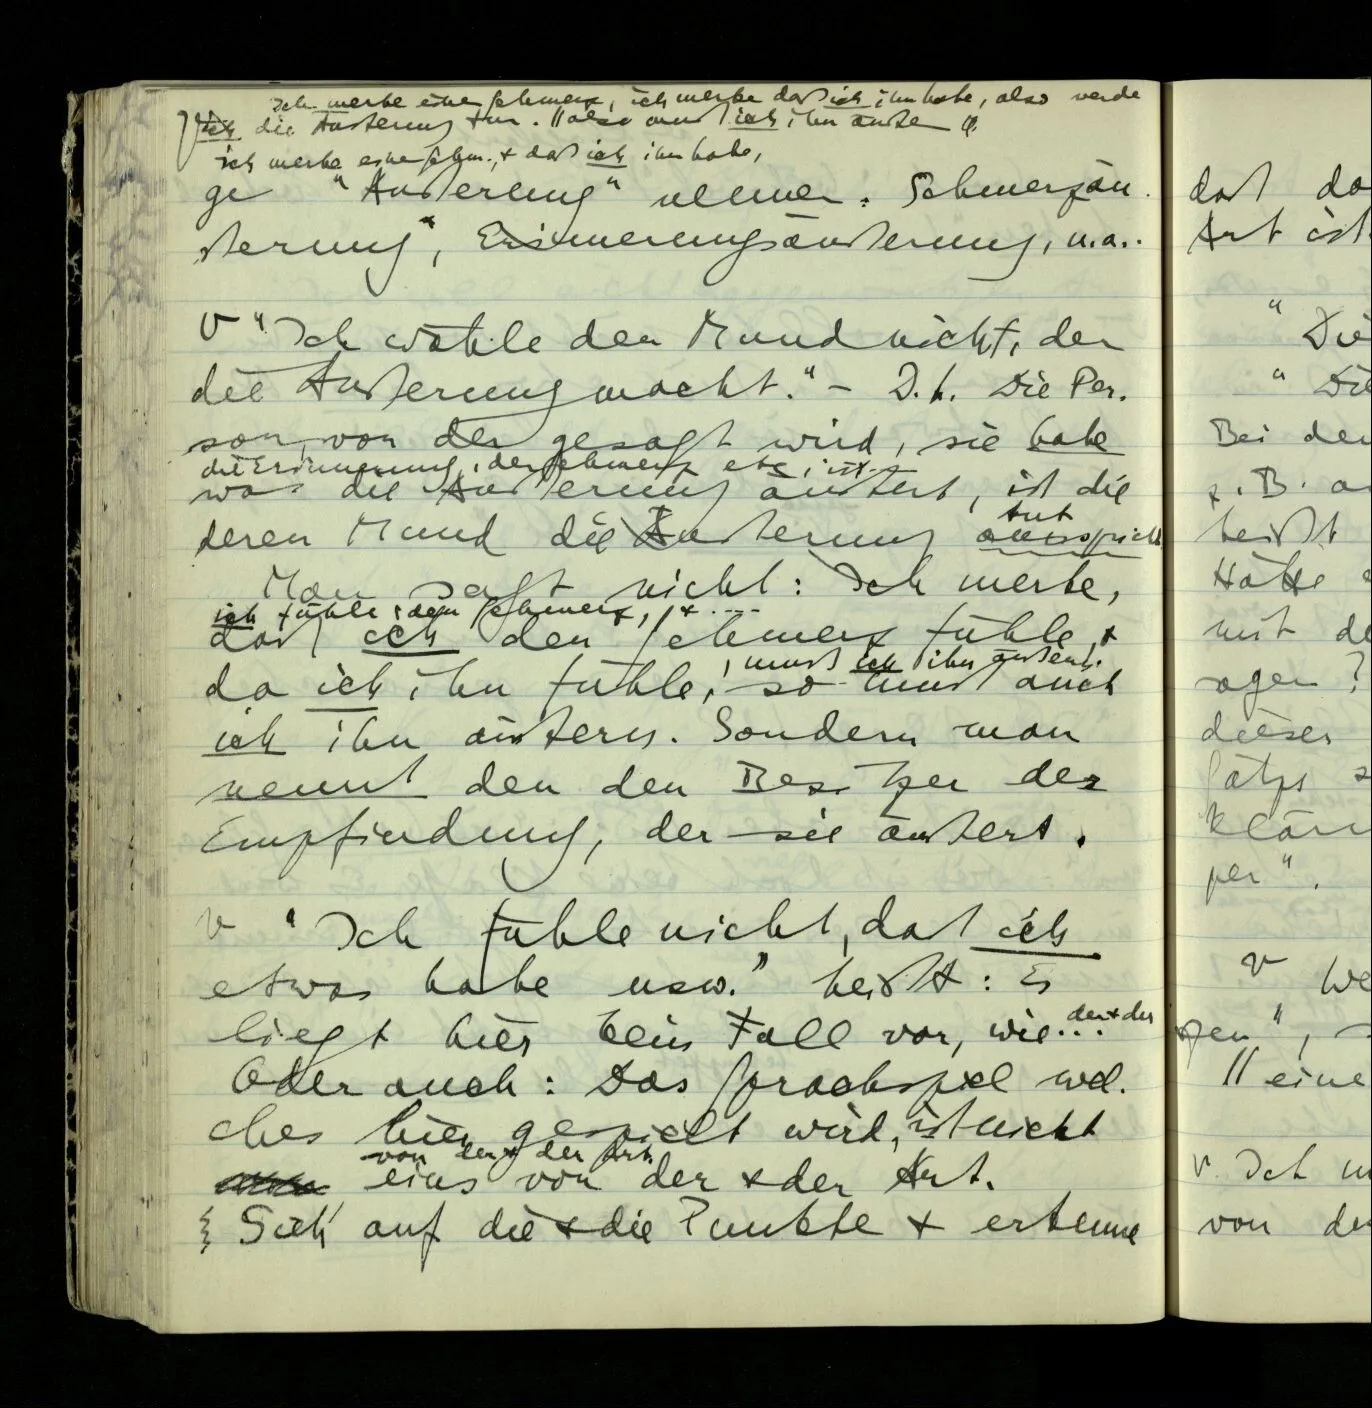 Ich merke eine Schmerz, ich merke daß ich ihn habe, also werde
ich die Äußerung tun. // also muß ich ihn äußen //
ich merke eine Schm., & daß ich ihn habe,
ge "Äußerung" nennen. Schmerzäu
ßerung", Erinnerungsäußerung, u.a..
V "Ich wähle den Mund nicht, der
die Äußerung macht." – D.h. Die Per-
son, von der gesagt wird, sie habe
die Erinnerung, den Schmerz etc, ist
was die Äußerung äußert, ist die
tut
deren Mund die Äußerung ausspricht
Man sagt nicht: Ich merke,
ich fühle den Schmerz, & ....
daß ich den Schmerz fühle, &
, muß ich ihn äußern.
da ich ihn fühle, so muß auch
ich ihn äußern. Sondern man
nennt den den Besitzer der
Empfindung, der sie äußert.
V "Ich fühle nicht, daß ich
etwas habe usw." heißt: Es
liegt hier kein Fall vor, wie... der & der
Oder auch: Das Sprachspiel wel-
ches hier gespielt wird, ist nicht
von der & der Art
eins von der & der Art.
Sieh auf die & die Punkte & erkenne
daß da
Art ist
" Die
" Die
Bei der
z.B. a
heißt
Hätte
mit de
sagen?
dieser
Satzs s
klär
per".
V We
gen", –
// eine
V. Ich m
von de